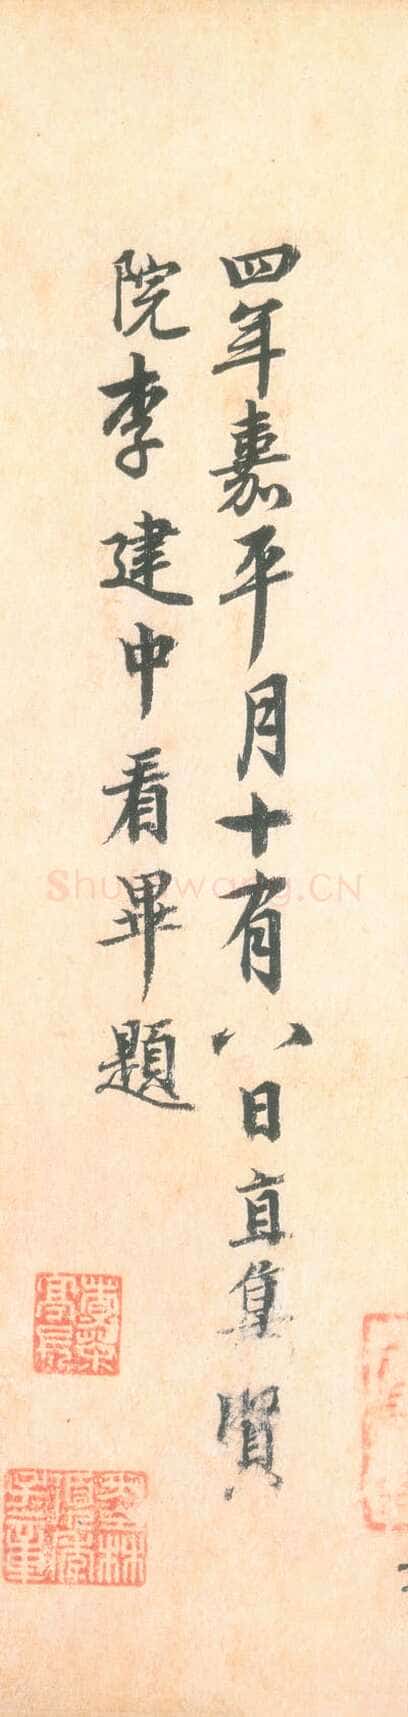 四年嘉平月十有八日直集賢
院李建中看畢題